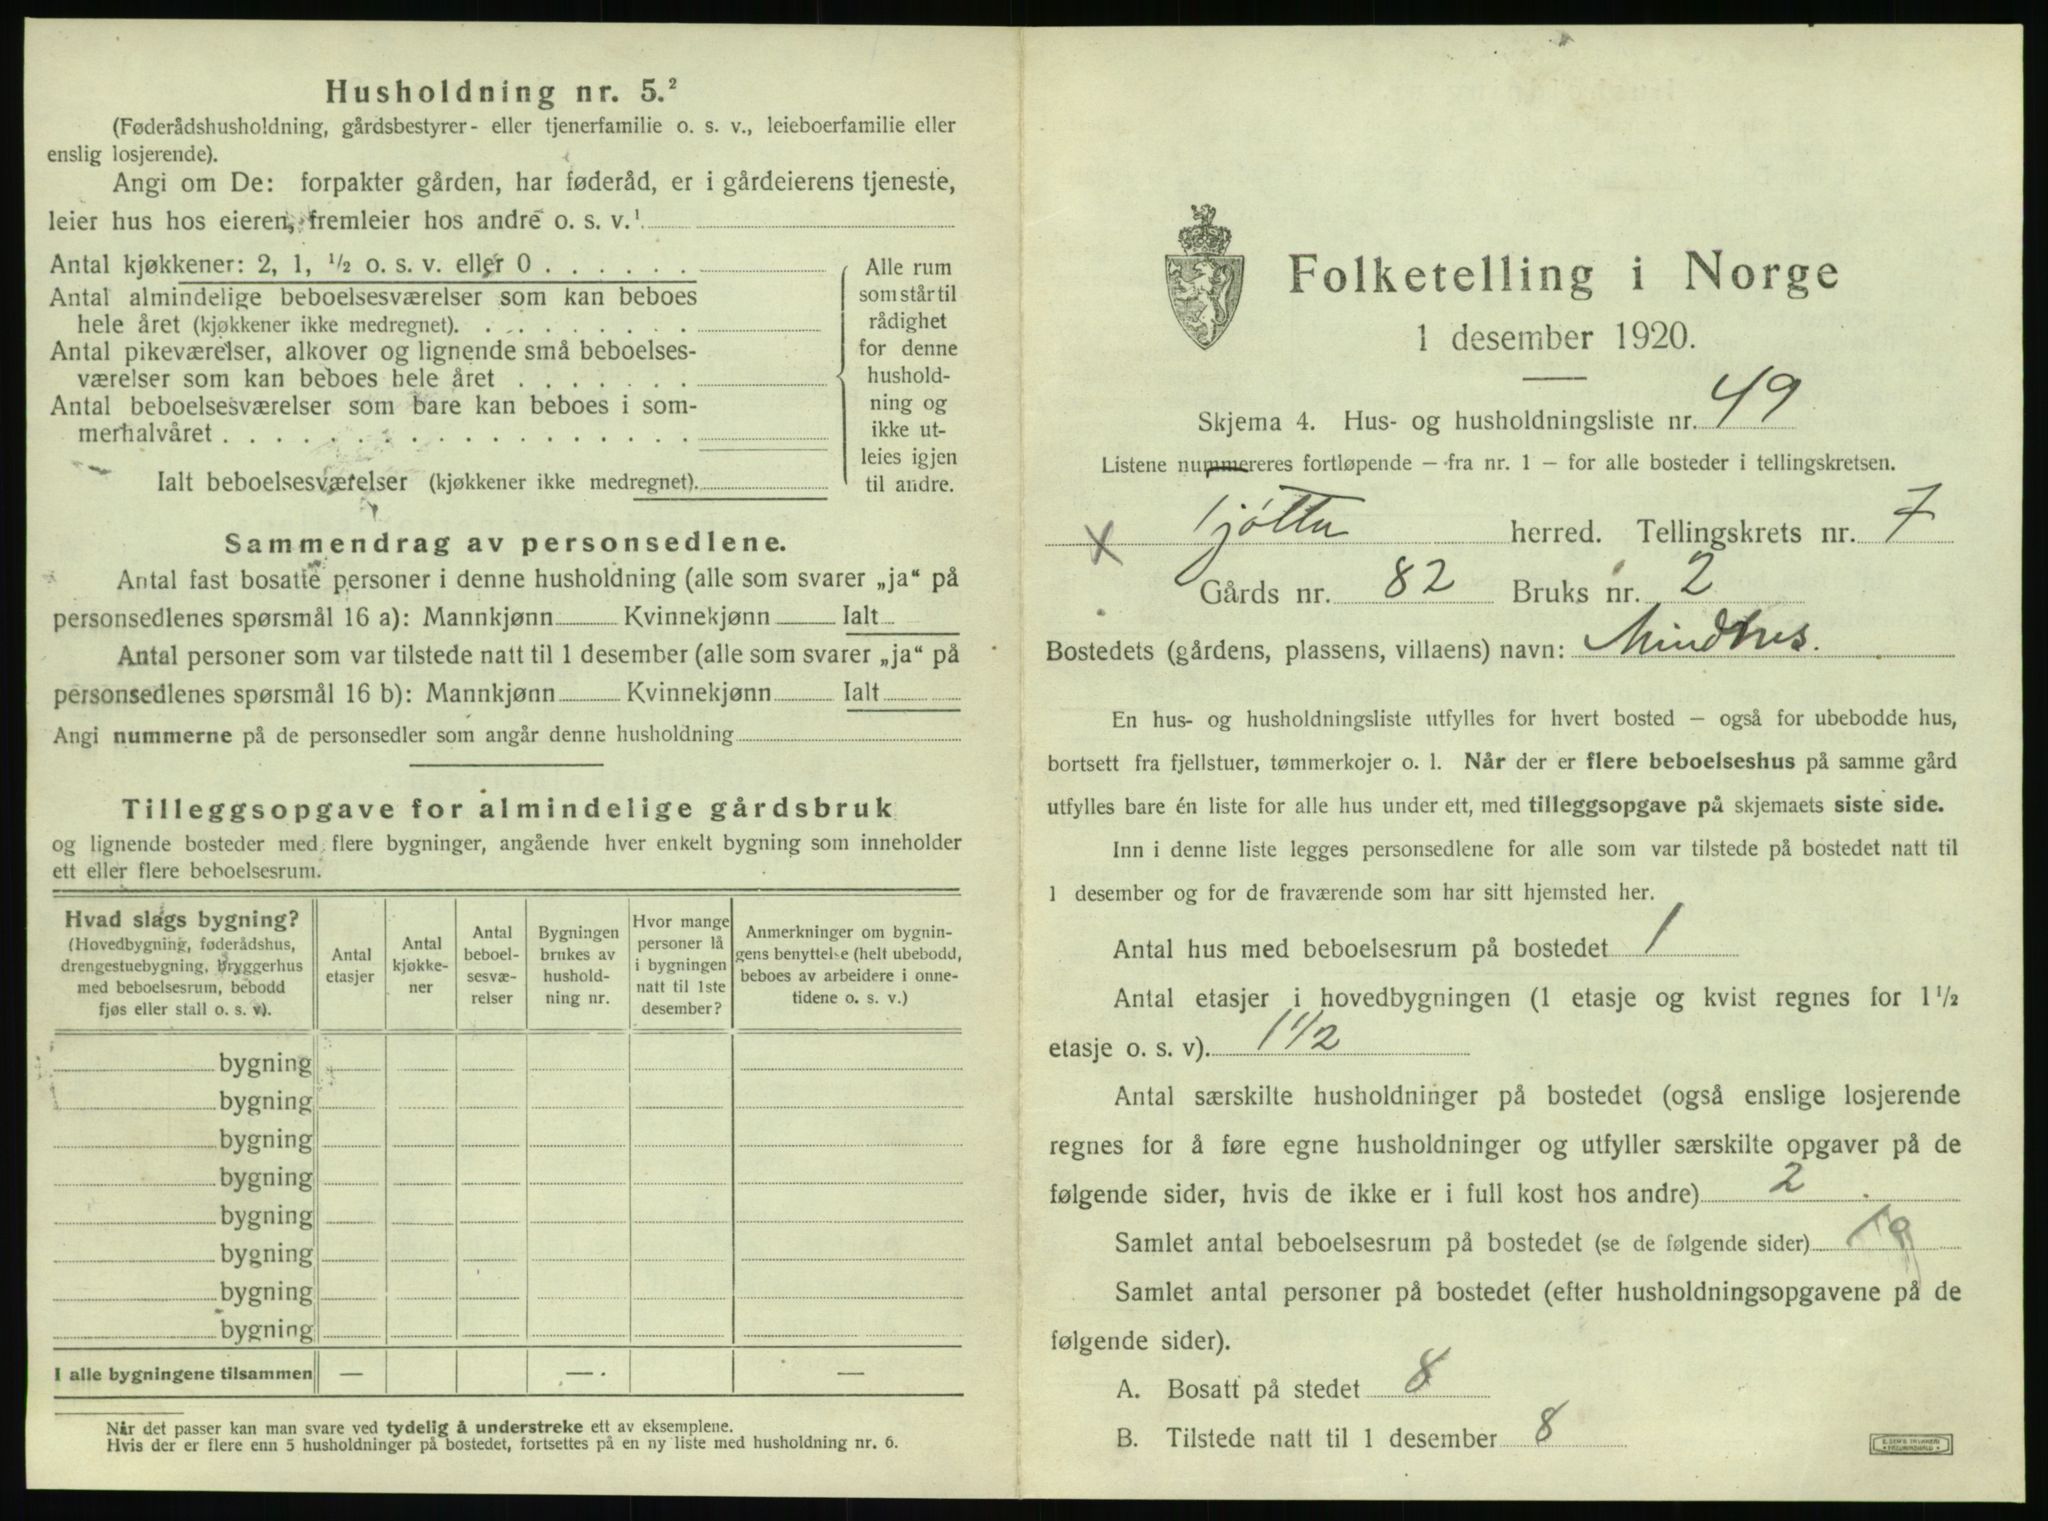 Husholdning nr. 5.²
(Føderådshusholdning, gårdsbestyrer- eller tjenerfamilie o. s. v., leieboerfamilie eller
enslig losjerende).
Angi om De: forpakter gården, har føderåd, er i gårdeierens tjeneste,
leier hus hos eieren, fremleier hos andre o. s. v.¹
Antal kjøkkener: 2, 1, ½ o. s. v. eller 0 . . . . . .
Antal almindelige beboelsesværelser som kan beboes
hele året (kjøkkener ikke medregnet). . . . . . . . .
Antal pikeværelser, alkover og lignende små beboelses-
værelser som kan beboes hele året . . . . . . .
Antal beboelsesværelser som bare kan beboes i som-
merhalvåret . . . . . . . . . . . . . . . . . .
Ialt beboelsesværelser (kjøkkener ikke medregnet).
Alle rum
som står til
rådighet
for denne
hushold-
ning og
ikke ut-
leies igjen
til andre.
Sammendrag av personsedlene.
Antal fast bosatte personer i denne husholdning (alle som svarer „ja“ på
personsedlenes spørsmål 16 a): Mannkjønn Kvinnekjønn Ialt
Antal personer som var tilstede natt til 1 desember (alle som svarer „ja“ på
personsedlenes spørsmål 16 b): Mannkjønn Kvinnekjønn Ialt
Angi nummerne på de personsedler som angår denne husholdning
Tilleggsopgave for almindelige gårdsbruk
og lignende bosteder med flere bygninger, angående hver enkelt bygning som inneholder
ett eller flere beboelsesrum.
Hvad slags bygning?
(Hovedbygning, føderådshus,
drengestuebygning, bryggerhus
med beboelsesrum, bebodd
fjøs eller stall o. s. v).
Antal
etasjer
Antal
kjøkke-
ner
Antal
beboel-
sesvæ-
relser
Bygningen
brukes av
hushold-
ning nr.
Hvor mange
personer lå
i bygningen
natt til 1ste
desember?
Anmerkninger om bygnin-
gens benyttelse (helt ubebodd,
beboes av arbeidere i onne-
tidene o. s. v.)
bygning
bygning
bygning
bygning
bygning
bygning
bygning
bygning
I alle bygningene tilsammen — — . —
Når det passer kan man svare ved tydelig å understreke ett av eksemplene.
Hvis der er flere enn 5 husholdninger på bostedet, fortsettes på en ny liste med husholdning nr. 6.
Folketelling i Norge
1 desember 1920.
Skjema 4. Hus- og husholdningsliste nr. 49
Listene nummereres fortløpende – fra nr. 1 – for alle bosteder i tellingskretsen.
x Tjøtta herred. Tellingskrets nr. 7
Gårds nr. 82 Bruks nr. 2
Bostedets (gårdens, plassens, villaens) navn: Mindnes.
En hus- og husholdningsliste utfylles for hvert bosted – også for ubebodde hus,
bortsett fra fjellstuer, tømmerkojer o. l. Når der er flere beboelseshus på samme gård
utfylles bare én liste for alle hus under ett, med tilleggsopgave på skjemaets siste side.
Inn i denne liste legges personsedlene for alle som var tilstede på bostedet natt til
1 desember og for de fraværende som har sitt hjemsted her.
Antal hus med beboelsesrum på bostedet 1
Antal etasjer i hovedbygningen (1 etasje og kvist regnes for 1½
etasje o. s. v). 1½
Antal særskilte husholdninger på bostedet (også enslige losjerende
regnes for å føre egne husholdninger og utfyller særskilte opgaver på de
følgende sider, hvis de ikke er i full kost hos andre) 2
Samlet antal beboelsesrum på bostedet (se de følgende sider)
Samlet antal personer på bostedet (efter husholdningsopgavene på de
følgende sider).
A. Bosatt på stedet 8
B. Tilstede natt til 1 desember 8